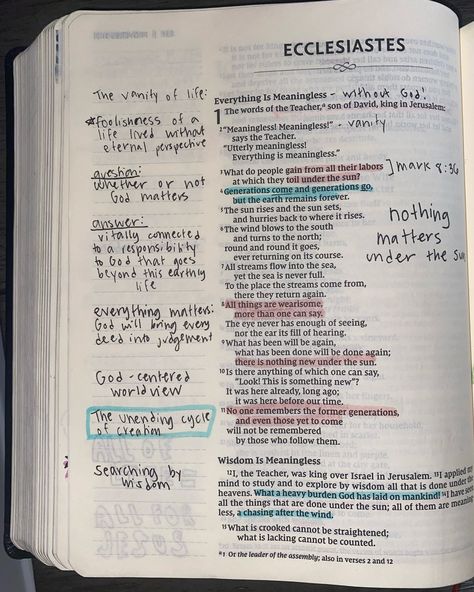 ECCLESIASTES
The vanity of life:
*foolishness of a
life lived without
eternal perspective
question:
whether or not
God matters
answer:
vitally connected
to a responsibility
to God that goes
beyond this earthly
life
everything matters:
God will bring every
deed into judgement
God-centered
worldview
The unending cycle
of creation
Searching by
wisdom
Everything Is Meaningless - without God!
1 The words of the Teacher,ᵃ son of David, king in Jerusalem:
2 "Meaningless! Meaningless!" - vanity
says the Teacher.
"Utterly meaningless!
Everything is meaningless."
3 What do people gain from all their labors
at which they toil under the sun? ] mark 8:36
4 Generations come and generations go,
but the earth remains forever.
5 The sun rises and the sun sets,
and hurries back to where it rises.
6 The wind blows to the south
and turns to the north;
round and round it goes,
ever returning on its course.
7 All streams flow into the sea,
yet the sea is never full.
To the place the streams come from,
there they return again.
8 All things are wearisome,
more than one can say.
The eye never has enough of seeing,
nor the ear its fill of hearing.
9 What has been will be again,
what has been done will be done again;
there is nothing new under the sun.
10 Is there anything of which one can say,
"Look! This is something new"?
It was here already, long ago;
it was here before our time.
11 No one remembers the former generations,
and even those yet to come
will not be remembered
by those who follow them.
nothing
matters
under the sun
Wisdom Is Meaningless
12 I, the Teacher, was king over Israel in Jerusalem. 13 I applied my
mind to study and to explore by wisdom all that is done under the
heavens. What a heavy burden God has laid on mankind! 14 I have seen
all the things that are done under the sun; all of them are meaning
less, a chasing after the wind.
15 What is crooked cannot be straightened;
what is lacking cannot be counted.
ᵃ 1 Or the leader of the assembly; also in verses 2 and 12